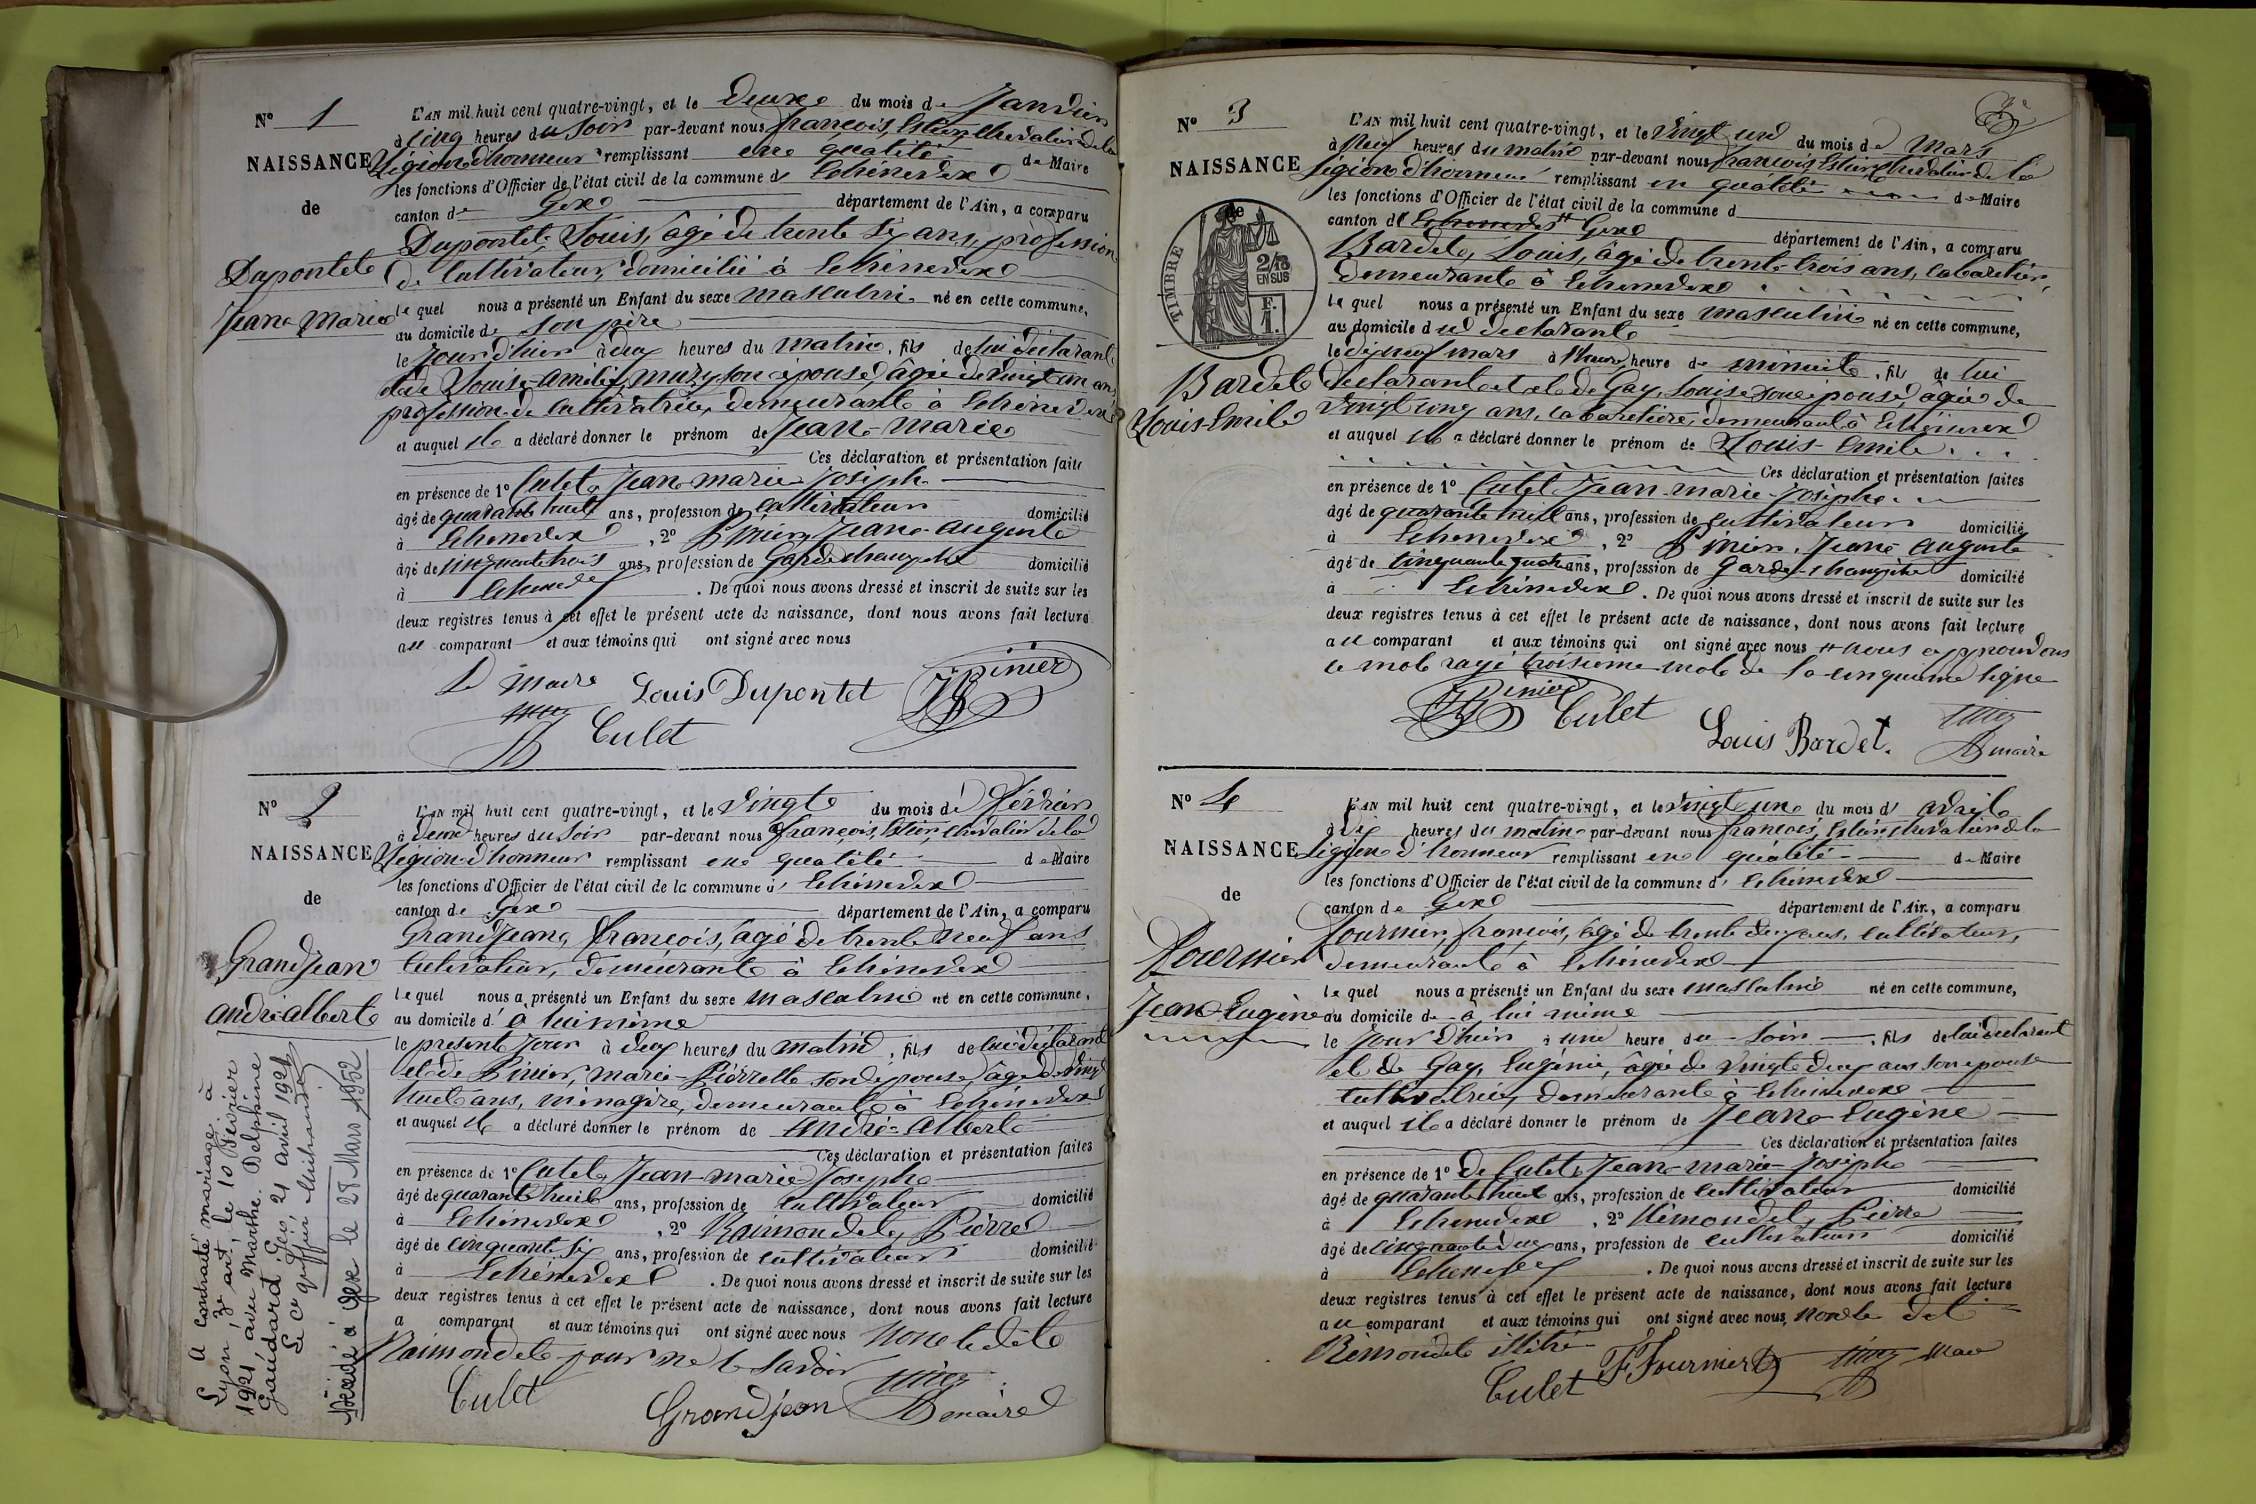 N° 1
NAISSANCE
de
Dupontet
Jean Marie
L'AN mil huit cent quatre-vingt, et le Deux du mois de Janvier
à cinq heures du Soir par-devant nous françois, Estier, Chevalier de la
Légion d'honneur remplissant en qualité de Maire
les fonctions d'Officier de l'état civil de la commune d Echenevex
canton de Gex département de l'Ain, a comparu
Dupontet, Louis, âgé de trente six ans, profession
de Cultivateur, domicilié à Echenevex
lequel nous a présenté un Enfant du sexe masculin né en cette commune,
au domicile de son père
le jour d'hier à deux heures du matin, fils de lui déclarant
et de Louise-Amélie, muzy son épouse, âgée de vingt un ans
profession de Cultivatrice, demeurant à Echenevex
et auquel il a déclaré donner le prénom de Jean-marie
Ces déclaration et présentation faites
en présence de 1° Culet, Jean marie Joseph
âgé de quarante huit ans, profession de cultivateur domicilié
à Echenevex, 2° Pinier, Jean-auguste
âgé de cinquante trois ans, profession de Garde champêtre domicilié
à Echenevex. De quoi nous avons dressé et inscrit de suite sur les
deux registres tenus à cet effet le présent acte de naissance, dont nous avons fait lecture
au comparant et aux témoins qui ont signé avec nous
Le maire Louis Dupontet Pinier
Culet
N° 2
NAISSANCE
de
Grandjean
andré albert
L'AN mil huit cent quatre-vingt, et le Vingt du mois de Février
à deux heures du Soir par-devant nous françois, Estier, chevalier de la
Légion d'honneur remplissant en qualité de Maire
les fonctions d'Officier de l'état civil de la commune d' Echenevex
canton de Gex département de l'Ain, a comparu
Grandjean, françois, âgé de trente neuf ans
Cultivateur, demeurant à Echenevex
lequel nous a présenté un Enfant du sexe masculin né en cette commune,
au domicile d' à lui même
le présent jour à deux heures du matin, fils de lui déclarant
et de Pinier, marie-Pierrette son épouse, âgée de vingt
huit ans, ménagère, demeurant à Echenevex
et auquel il a déclaré donner le prénom de André-Albert
Ces déclaration et présentation faites
en présence de 1° Culet, Jean-marie Joseph
âgé de quarante huit ans, profession de cultivateur domicilié
à Echenevex, 2° Raimondet, Pierre
âgé de cinquante six ans, profession de cultivateur domicilié
à Echenevex. De quoi nous avons dressé et inscrit de suite sur les
deux registres tenus à cet effet le présent acte de naissance, dont nous avons fait lecture
a comparant et aux témoins qui ont signé avec nous Non le dit
Raimondet pour ne le savoir
Culet Grandjean maire
A contracté mariage à
Lyon, 3e art, le 10 Février
1921 avec Marthe Delphine
Gaudard, Gex, 21 avril 1921
Le greffier
Décédé à Gex le 28 Mars 1952
N° 3
NAISSANCE
de
TIMBRE
2/10
EN SUS
Bardet
Louis-Emile
L'AN mil huit cent quatre-vingt, et le vingt un du mois de Mars
à Neuf heures du matin par-devant nous françois, Estier, chevalier de la
Légion d'honneur remplissant en qualité de Maire
les fonctions d'Officier de l'état civil de la commune d
canton d Echenevex # Gex département de l'Ain, a comparu
Bardet, Louis, âgé de trente-trois ans, cabaretier,
demeurant à Echenevex
lequel nous a présenté un Enfant du sexe masculin né en cette commune,
au domicile du déclarant
le dix neuf mars à heure de minuit, fils de lui
déclarant et de Gay, Louise son épouse âgée de
vingt cinq ans, cabaretière, demeurant à Echenevex
et auquel il a déclaré donner le prénom de Louis-Emile
Ces déclaration et présentation faites
en présence de 1° Culet Jean-marie-Joseph
âgé de quarante huit ans, profession de cultivateur domicilié
à Echenevex, 2° Pinier, Jean auguste
âgé de cinquante quatre ans, profession de Garde-champêtre domicilié
à Echenevex. De quoi nous avons dressé et inscrit de suite sur les
deux registres tenus à cet effet le présent acte de naissance, dont nous avons fait lecture
au comparant et aux témoins qui ont signé avec nous # nous approuvons
le mot rayé troisième mot de la cinquième ligne
Pinier Culet Louis Bardet maire
N° 4
NAISSANCE
de
Fournier
Jean-Eugène
L'AN mil huit cent quatre-vingt, et le vingt un du mois d' avril
à dix heures du matin par-devant nous françois, Estier, chevalier de la
légion d'honneur remplissant en qualité de Maire
les fonctions d'Officier de l'état civil de la commune d' Echenevex
canton de Gex département de l'Ain, a comparu
Fournier, françois, âgé de trente deux ans, cultivateur,
demeurant à Echenevex
lequel nous a présenté un Enfant du sexe masculin né en cette commune,
au domicile de à lui même
le jour d'hier à une heure du Soir, fils de lui déclarant
et de Gay, Eugénie, âgée de vingt deux ans son épouse
cultivatrice, demeurant à Echenevex
et auquel il a déclaré donner le prénom de Jean-Eugène
Ces déclaration et présentation faites
en présence de 1° de Culet, Jean-marie-Joseph
âgé de quarante huit ans, profession de cultivateur domicilié
à Echenevex, 2° Rémondet, Pierre
âgé de cinquante deux ans, profession de cultivateur domicilié
à Echenevex. De quoi nous avons dressé et inscrit de suite sur les
deux registres tenus à cet effet le présent acte de naissance, dont nous avons fait lecture
au comparant et aux témoins qui ont signé avec nous, non le dit
Rémondet illitré
Culet F. Fournier